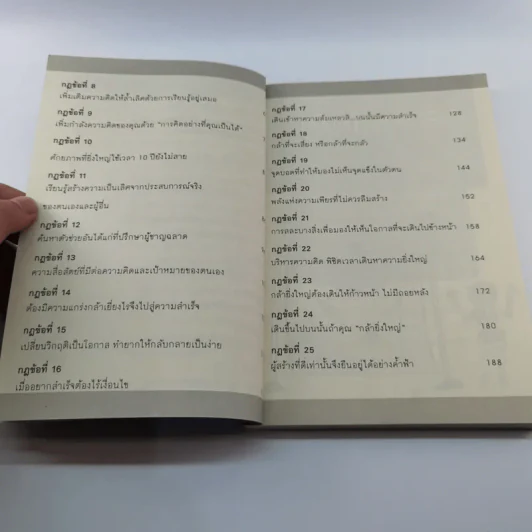 กฎข้อที่ 8
เพิ่มเติมความคิดให้ล้ำเลิศด้วยการเรียนรู้อยู่เสมอ
กฎข้อที่ 9
เพิ่มกำลังความคิดของคุณด้วย "การคิดอย่างที่คุณเป็นได้"
กฎข้อที่ 10
ศักยภาพที่ยิ่งใหญ่ใช้เวลา 10 ปียังไม่สาย
กฎข้อที่ 11
เรียนรู้สร้างความเป็นเลิศจากประสบการณ์จริง
ของตนเองและผู้อื่น
กฎข้อที่ 12
ค้นหาตัวช่วยอันได้แก่ที่ปรึกษาผู้ชาญฉลาด
กฎข้อที่ 13
ความสื่อสัตย์ที่มีต่อความคิดและเป้าหมายของตนเอง
กฎข้อที่ 14
ต้องมีความแกร่งกล้าเยี่ยงไรจึงไปสู่ความสำเร็จ
กฎข้อที่ 15
เปลี่ยนวิกฤติเป็นโอกาส ทำยากให้กลับกลายเป็นง่าย
กฎข้อที่ 16
เมื่ออยากสำเร็จต้องไร้เงื่อนไข
กฎข้อที่ 17
เดินเข้าหาความล้มเหลวสิ...บนนั้นมีความสำเร็จ 128
กฎข้อที่ 18
กล้าที่จะเสี่ยง หรือกล้าที่จะกลัว 134
กฎข้อที่ 19
จุดบอดที่ทำให้มองไม่เห็นจุดแข็งในตัวตน 144
กฎข้อที่ 20
พลังแห่งความเพียรที่ไม่ควรลืมสร้าง 152
กฎข้อที่ 21
การถละบางสิ่งเพื่อมองให้เห็นโอกาสที่จะเดินไปข้างหน้า 158
กฎข้อที่ 22
บริหารความคิด พิชิตเวลาเดินหาความยิ่งใหญ่ 164
กฎข้อที่ 23
กล้ายิ่งใหญ่ต้องเดินให้ก้าวหน้า ไม่มีถอยหลัง 172
กฎข้อที่ 24
เดินขึ้นไปบนนั้นถ้าคุณ "กล้ายิ่งใหญ่" 180
กฎข้อที่ 25
ผู้สร้างที่ดีเท่านั้นจึงยืนอยู่ได้อย่างค้ำฟ้า 188